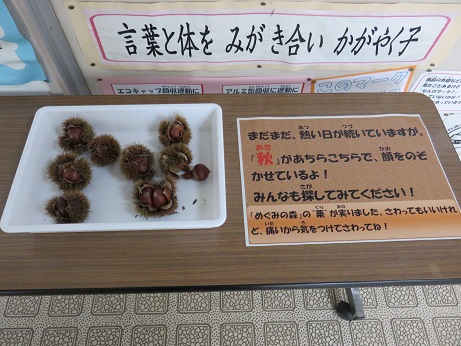 言葉と体を みがき合い かがやく子
エコキャップ回収運動に
アルミ缶回収に
このマーク
まだまだ、熱い日が続いていますが、
「秋」があちらこちらで、顔をのぞ
かせているよ!
みんなも探してみてください!
「めぐみの森」の“栗”が実りました。さわってもいいけれ
ど、痛いから気をつけてさわってね!